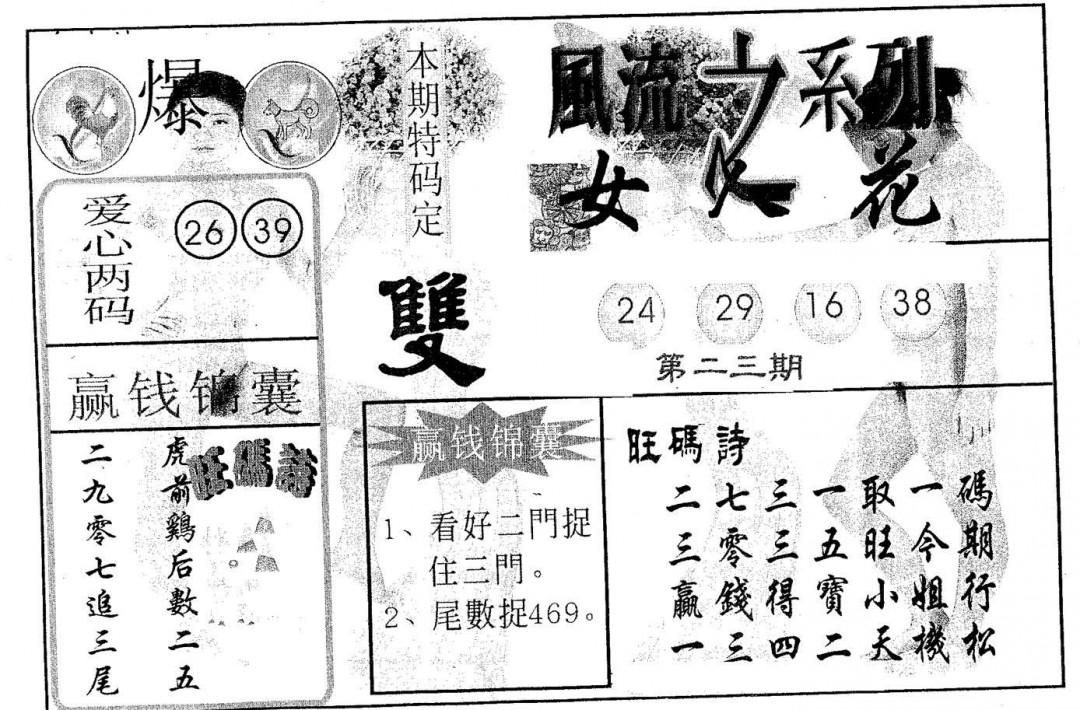 風流之系列
女人花
爆
本期特码定
雙
爱心两码
26 39
24 29 16 38
第二三期
赢钱锦囊
旺碼詩
虎前鷄后數二五
二九零七追三尾
赢钱锦囊
1、看好二門捉
住三門。
2、尾數捉469。
旺碼詩
碼期行松
一今姐機
取旺小天
一五寶二
三三得四
七零錢三
二三贏一